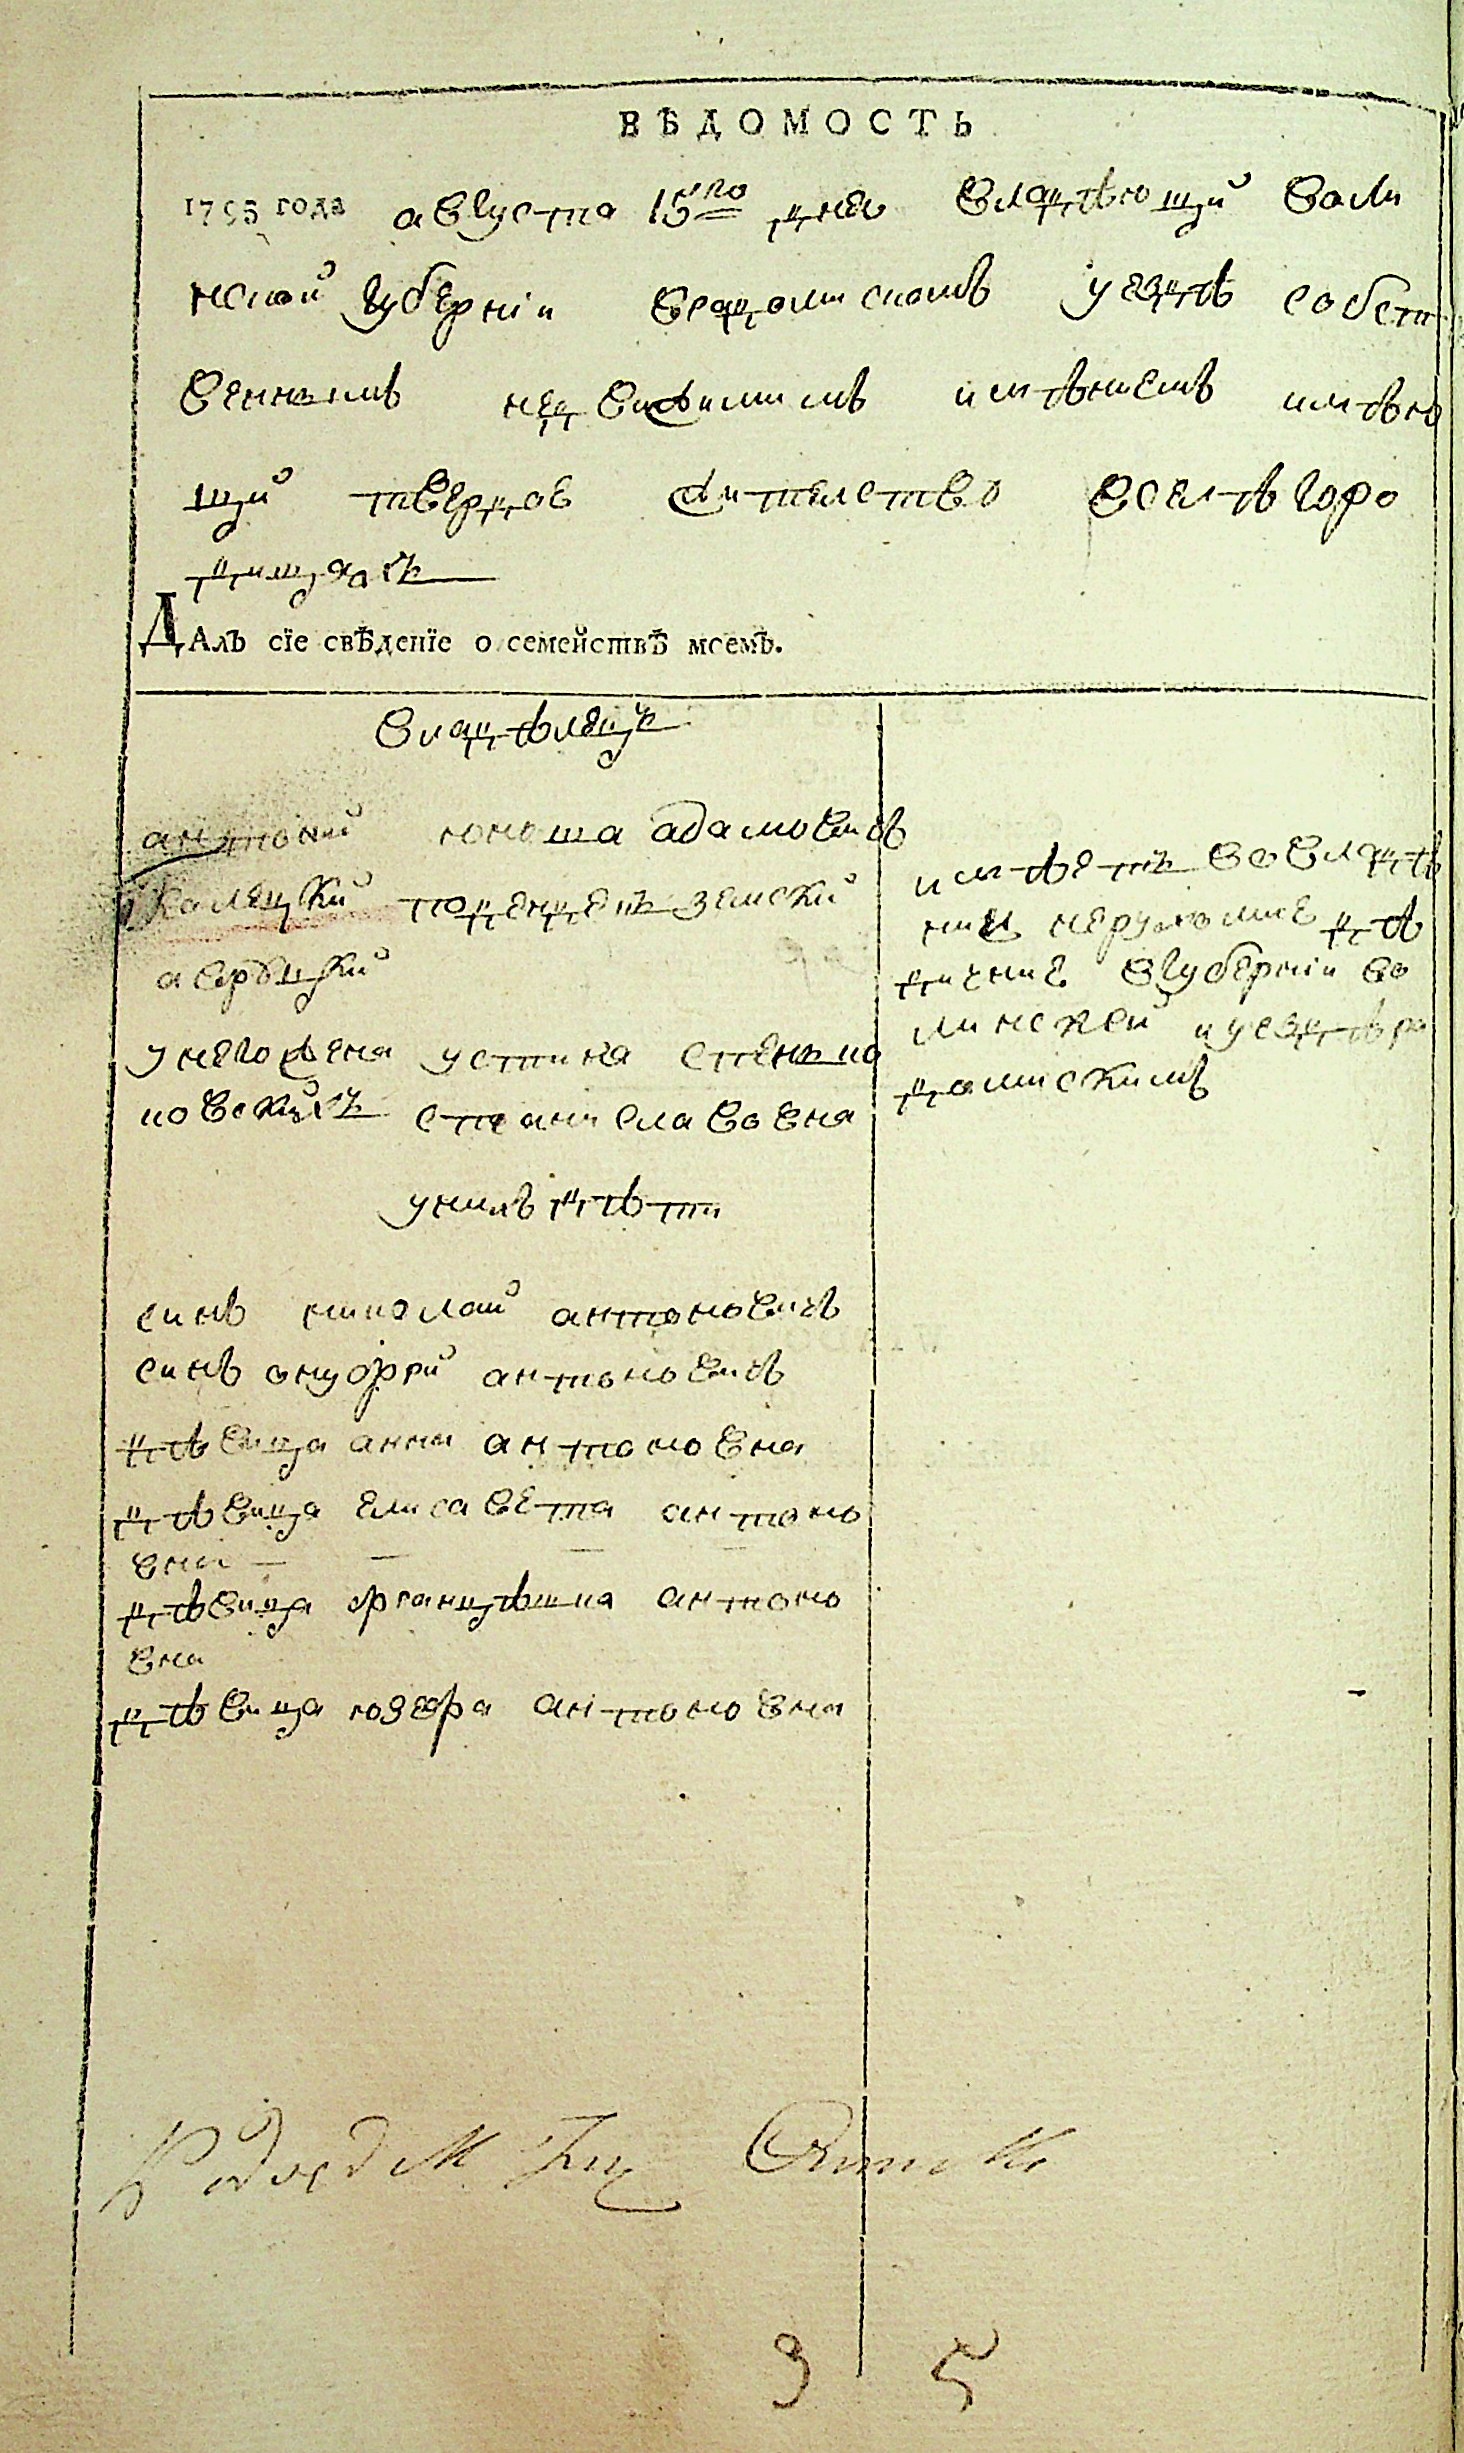 ВѢДОМОСТЬ
1795 года августа 15го дня владѣющій Воли
нской губерніи врадомискомъ уездѣ собст
веннымъ недвижимимъ имѣниемъ имѣю
щій твердое жителство вселѣ горо
дищахъ
Далъ сїе свѣденїе о семействѣ моемъ.
владѣлецъ
антоній юноша адамовичъ
каменцкій земски
У него жена устина
новскихъ станиславовна
у нихъ дѣти
синъ николай антоновичъ
синъ онуфрій антоновичъ
дѣвица анна антоновна
дѣвица елисавета антоно
вна
дѣвица францѣшка антоно
вна
дѣвица юзефа антоновна
имѣетъ во владѣ
нии нерухомие дѣ
дичние вгуберніи во
линской иуездѣ ра
домискимъ
9 5